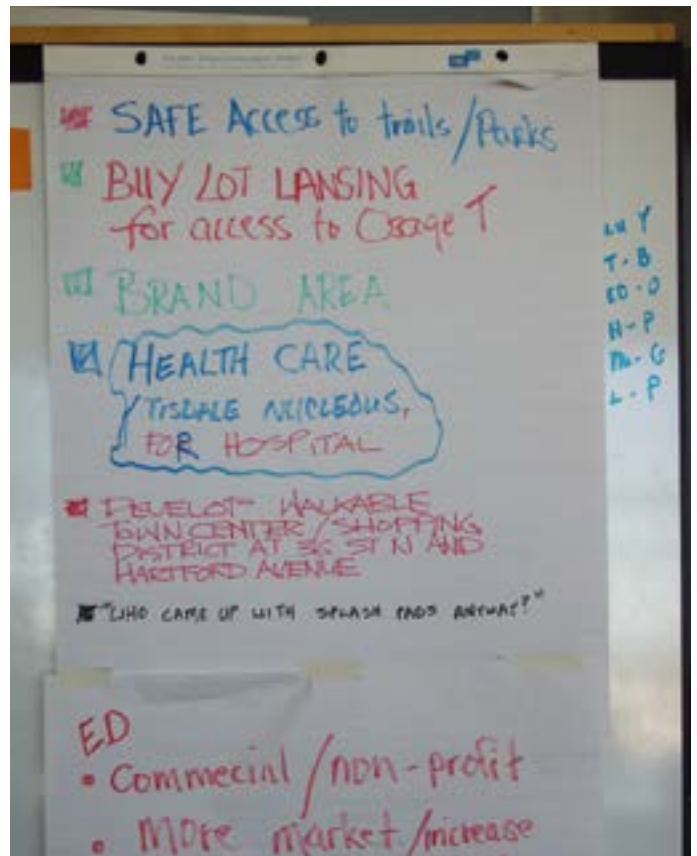 SAFE Access to trails/Parks
BUY LOT LANSING
for access to Osage T
BRAND AREA
HEALTH CARE
TISDALE NUCLEOUS,
FOR HOSPITAL
DEVELOP WALKABLE
TOWN CENTER/SHOPPING
DISTRICT AT 36 ST N AND
HARTFORD AVENUE
"WHO CAME UP WITH SPLASH PADS ANYWAY?"
ED
• Commecial/non-profit
• MORE market/increase
T - B
ED - O
H - P
L - P